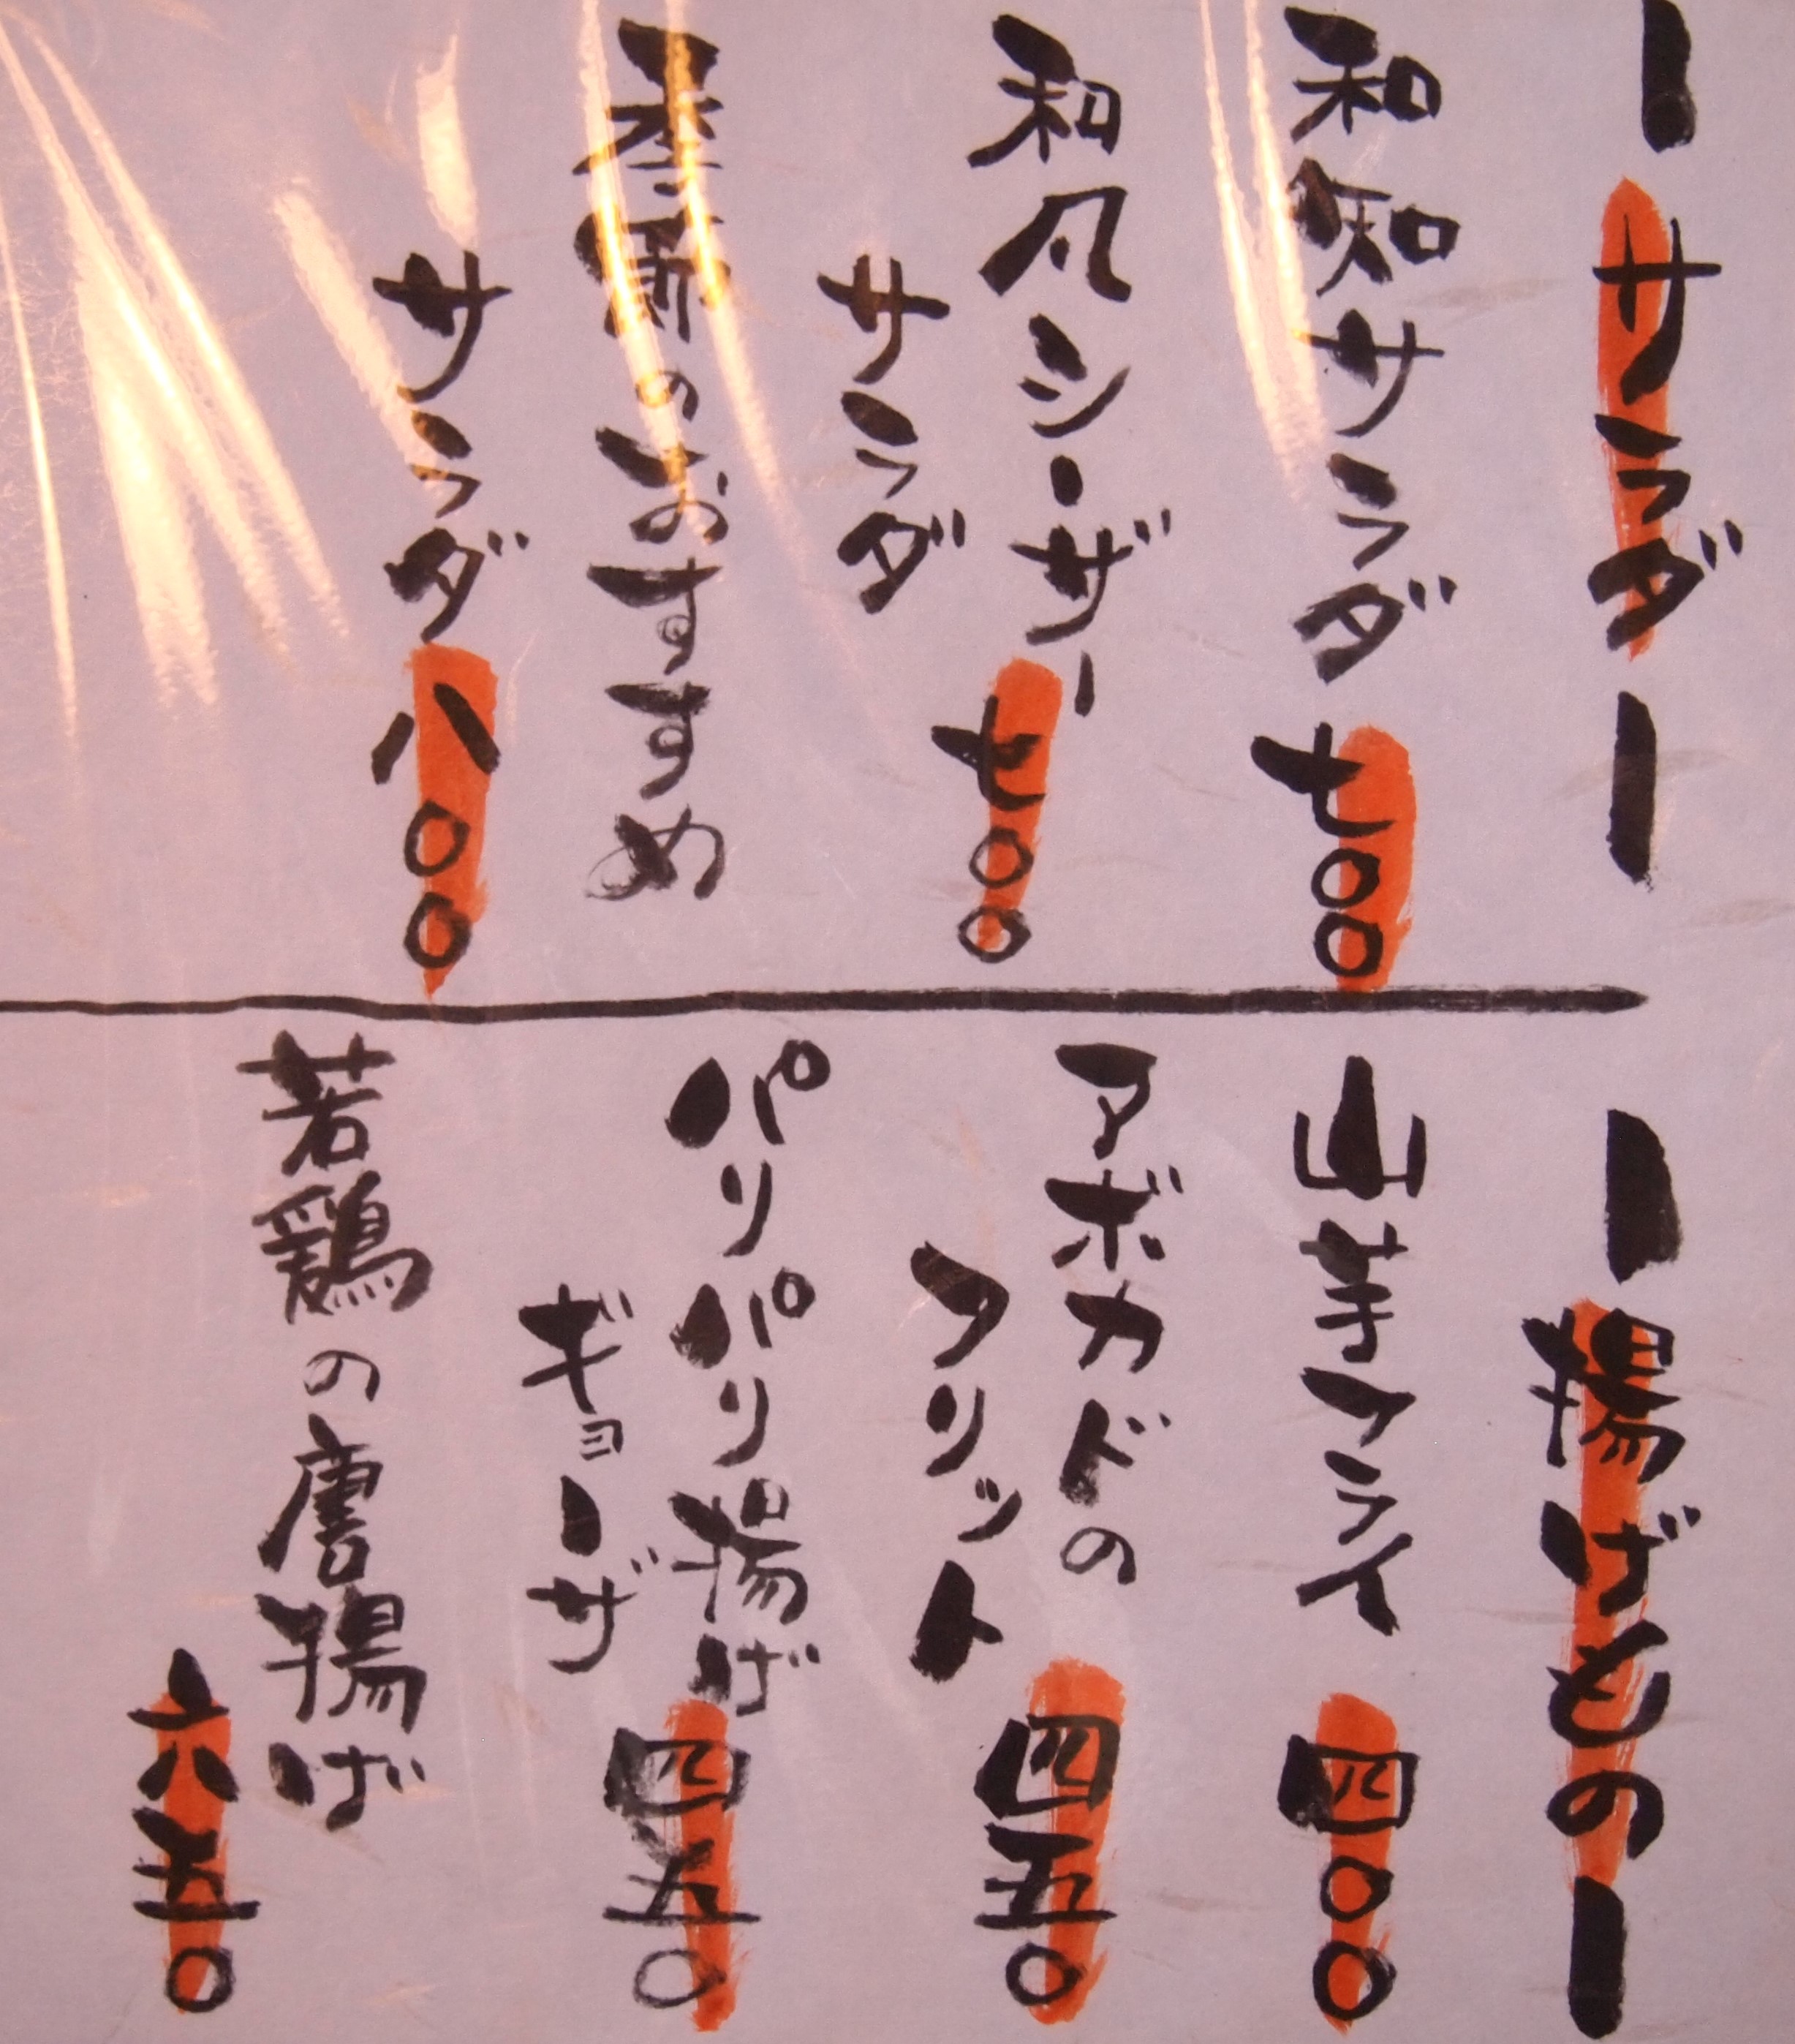 ーサラダー
和知サラダ 七〇〇
和風シーザー
サラダ 七〇〇
季節のおすすめ
サラダ 八〇〇
ー揚げものー
山芋フライ 四〇〇
アボカドの
フリット 四五〇
パリパリ揚げ
ギョーザ 四五〇
若鶏の唐揚げ
六五〇